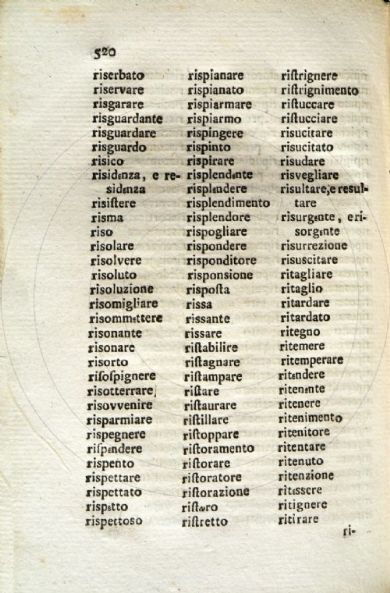 520
riserbato
riservare
risgarare
risguardante
risguardare
risguardo
risico
risidenza, e re-
sidenza
risistere
risma
riso
risolare
risolvere
risoluto
risoluzione
risomigliare
risommettere
risonante
risonare
risorto
risospignere
risotterrare
risovvenire
risparmiare
rispegnere
rispendere
rispento
rispettare
rispettato
rispetto
rispettoso
rispianare
rispianato
rispiarmare
rispiarmo
rispingere
rispinto
rispirare
risplendente
risplendere
risplendimento
risplendore
rispogliare
rispondere
risponditore
risponsione
risposta
rissa
rissante
rissare
ristabilire
ristagnare
ristampare
ristare
ristaurare
ristillare
ristoppare
ristoramento
ristorare
ristoratore
ristorazione
ristoro
ristretto
ristrignere
ristrignimento
ristuccare
ristucciare
risucitare
risucitato
risudare
risvegliare
risultare, e resul-
tare
risurgente, e ri-
sorgente
risurrezione
risuscitare
ritagliare
ritaglio
ritardare
ritardato
ritegno
ritemere
ritemperare
ritendere
ritenente
ritenere
ritenimento
ritenitore
ritentare
ritenuto
ritenzione
ritessere
ritignere
ritirare
ri-